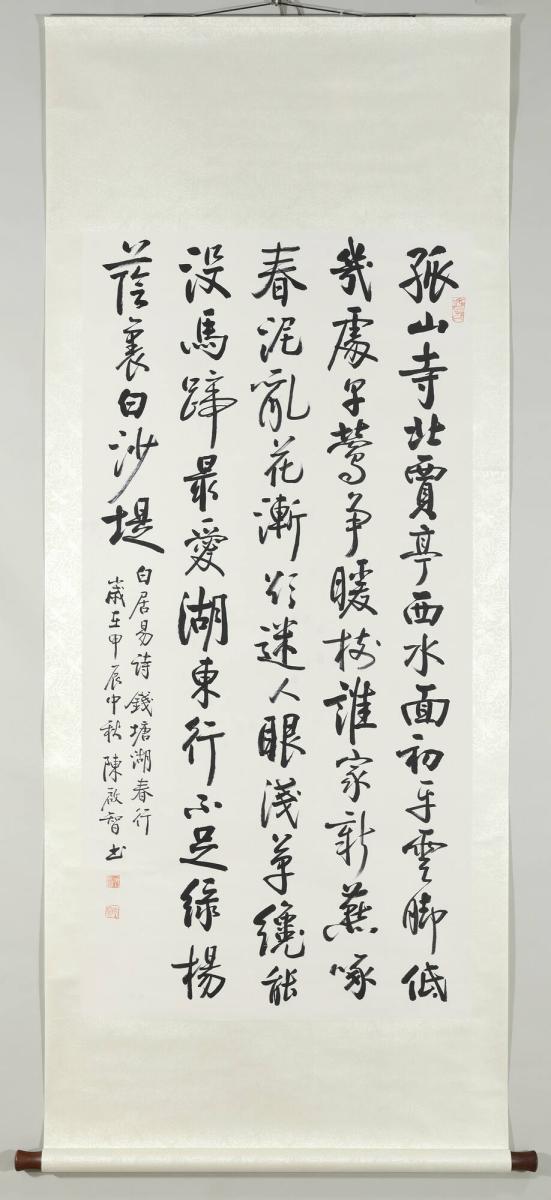 孤山寺北賈亭西水面初平雲脚低
幾處早鶯争暖樹誰家新燕啄
春泥亂花漸欲迷人眼淺草纔能
没馬蹄最愛湖東行不足緑楊
蔭裏白沙堤
白居易詩錢塘湖春行
歲在甲辰中秋陳啟智书